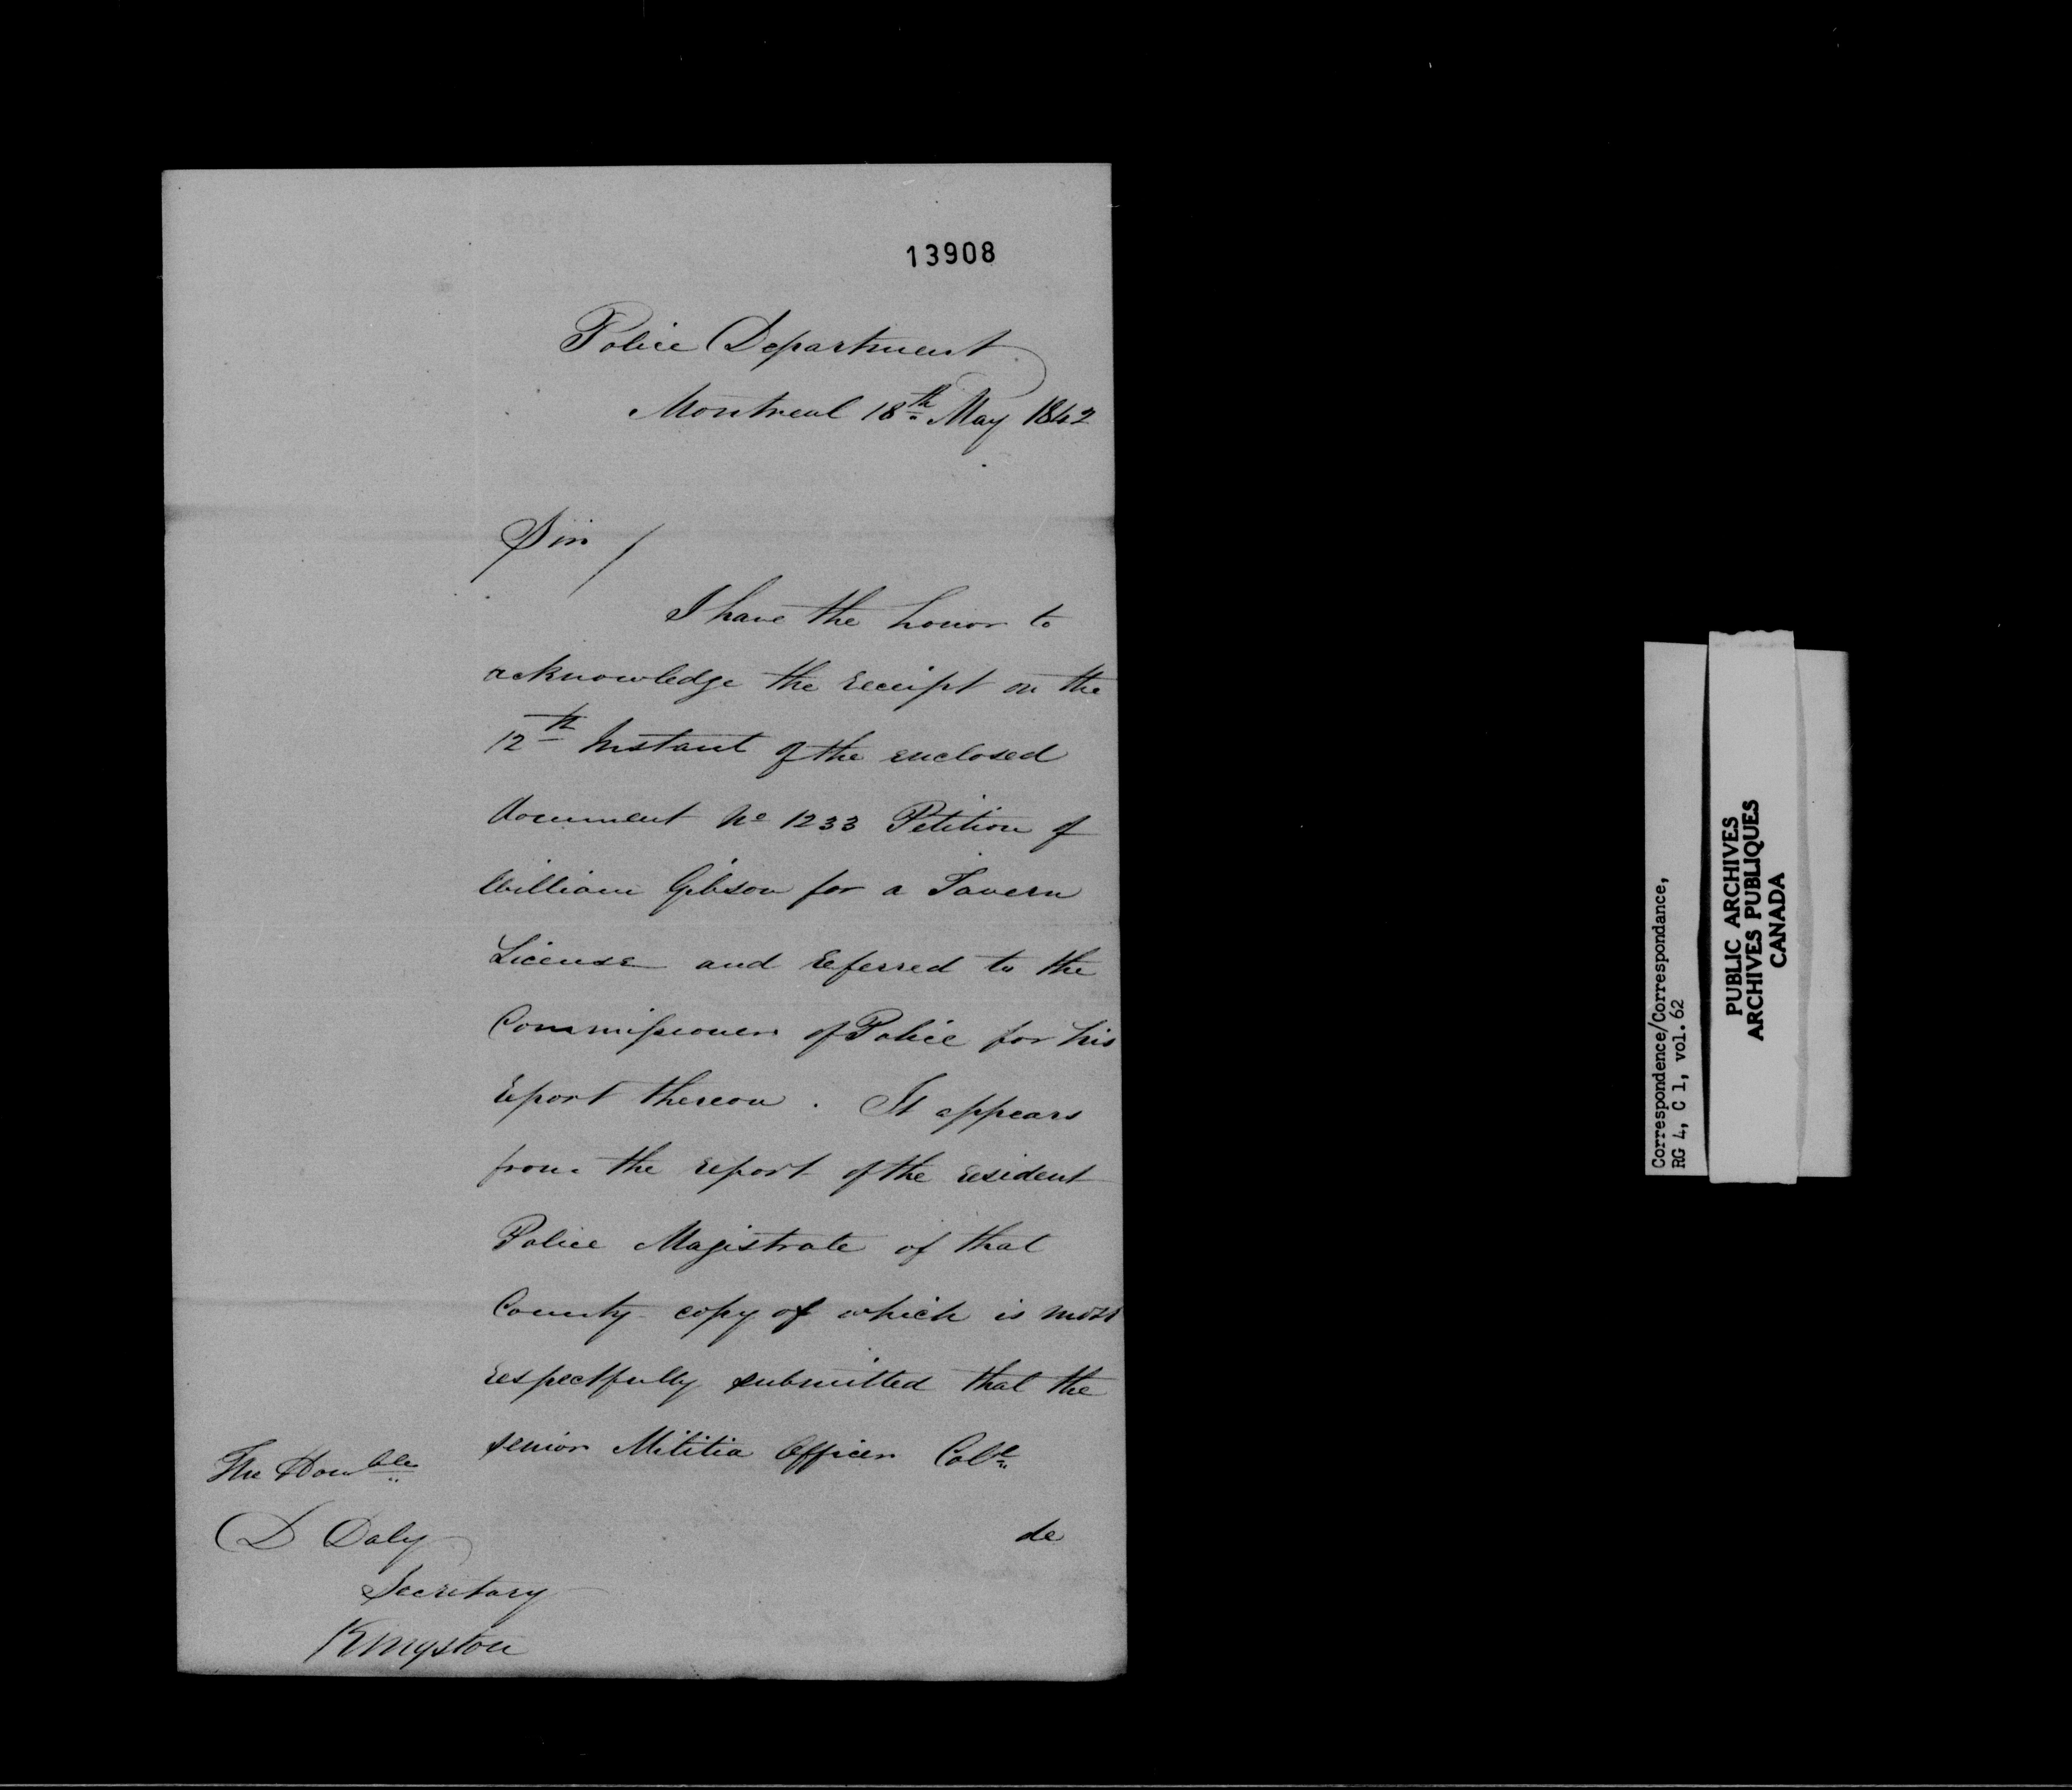 13908
Police Department
Montreal 18th May 1842
Sir /
I have the honor to
acknowledge the receipt on the
12th Instant of the enclosed
document No 1233 Petition of
William Gibson for a Tavern
License and referred to the
Commissioner of Police for his
report thereon. It appears
from the report of the resident
Police Magistrate of that
County copy of which is most
respectfully submitted that the
senior Militia Officer Coll
de
The Honble
D Daly
Secretary
Kingston
Correspondence/Correspondance,
RG 4, C 1, vol. 62
PUBLIC ARCHIVES
ARCHIVES PUBLIQUES
CANADA